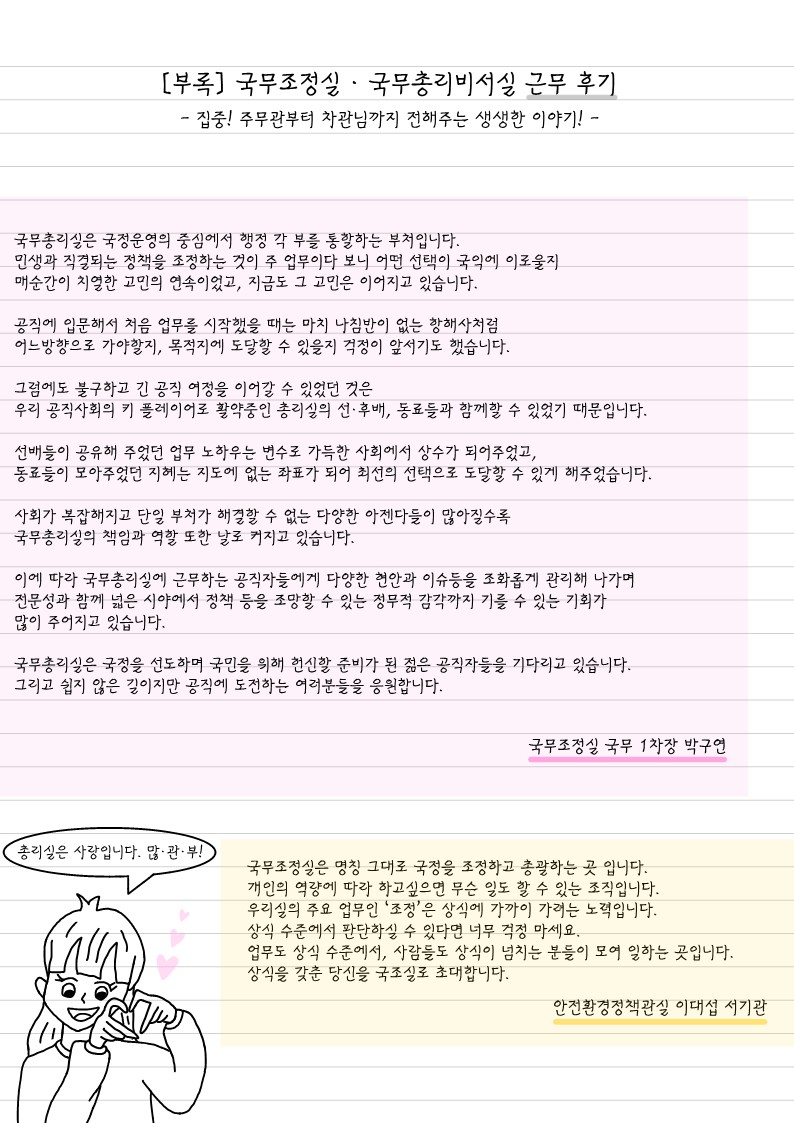 [부록] 국무조정실 · 국무총리비서실 근무 후기
- 집중! 주무관부터 차관님까지 전해주는 생생한 이야기! -
국무총리실은 국정운영의 중심에서 행정 각 부를 통할하는 부처입니다.
민생과 직결되는 정책을 조정하는 것이 주 업무이다 보니 어떤 선택이 국익에 이로울지
매순간이 치열한 고민의 연속이었고, 지금도 그 고민은 이어지고 있습니다.
공직에 입문해서 처음 업무를 시작했을 때는 마치 나침반이 없는 항해사처럼
어느방향으로 가야할지, 목적지에 도달할 수 있을지 걱정이 앞서기도 했습니다.
그럼에도 불구하고 긴 공직 여정을 이어갈 수 있었던 것은
우리 공직사회의 키 플레이어로 활약중인 총리실의 선·후배, 동료들과 함께할 수 있었기 때문입니다.
선배들이 공유해 주었던 업무 노하우는 변수로 가득한 사회에서 상수가 되어주었고,
동료들이 모아주었던 지혜는 지도에 없는 좌표가 되어 최선의 선택으로 도달할 수 있게 해주었습니다.
사회가 복잡해지고 단일 부처가 해결할 수 없는 다양한 아젠다들이 많아질수록
국무총리실의 책임과 역할 또한 날로 커지고 있습니다.
이에 따라 국무총리실에 근무하는 공직자들에게 다양한 현안과 이슈등을 조화롭게 관리해 나가며
전문성과 함께 넓은 시야에서 정책 등을 조망할 수 있는 정무적 감각까지 기를 수 있는 기회가
많이 주어지고 있습니다.
국무총리실은 국정을 선도하며 국민을 위해 헌신할 준비가 된 젊은 공직자들을 기다리고 있습니다.
그리고 쉽지 않은 길이지만 공직에 도전하는 여러분들을 응원합니다.
국무조정실 국무 1차장 박구연
총리실은 사랑입니다. 많·관·부!
국무조정실은 명칭 그대로 국정을 조정하고 총괄하는 곳 입니다.
개인의 역량에 따라 하고싶으면 무슨 일도 할 수 있는 조직입니다.
우리실의 주요 업무인 ‘조정’은 상식에 가까이 가려는 노력입니다.
상식 수준에서 판단하실 수 있다면 너무 걱정 마세요.
업무도 상식 수준에서, 사람들도 상식이 넘치는 분들이 모여 일하는 곳입니다.
상식을 갖춘 당신을 국조실로 초대합니다.
안전환경정책관실 이대섭 서기관